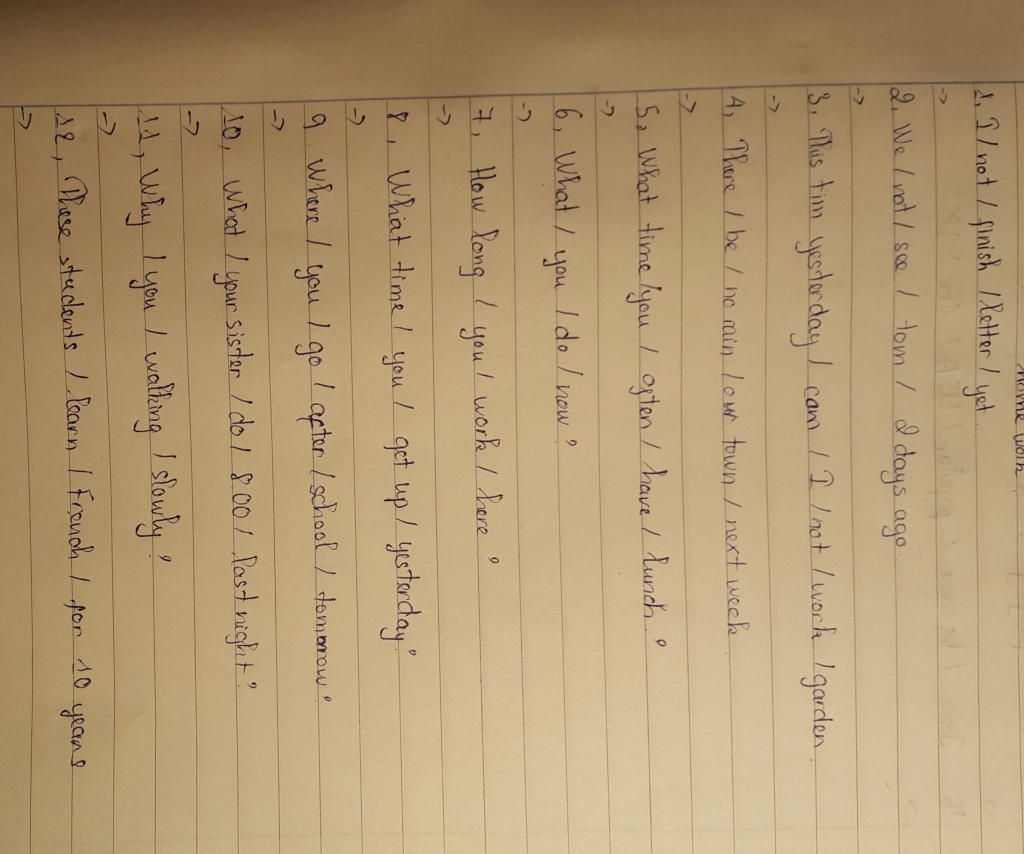 Home work
1, I / not / finish / letter / yet.
->
2, We / not / see / tom / 2 days ago.
->
3, This tim yesterday / cam / I / not / work / garden
->
4, There / be / no rain / our town / next week
->
5, What time / you / often / have / lunch ?
->
6, What / you / do / now ?
->
7, How long / you / work / here ?
->
8, What time / you / get up / yesterday ?
->
9 Where / you / go / after / school / tomorrow ?
->
10, What / your sister / do / 8.00 / last night ?
->
11, Why / you / walking / slowly ?
->
12, These students / learn / French / for 10 years
->